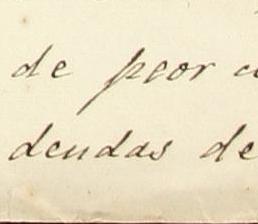 de peor c
deudas de